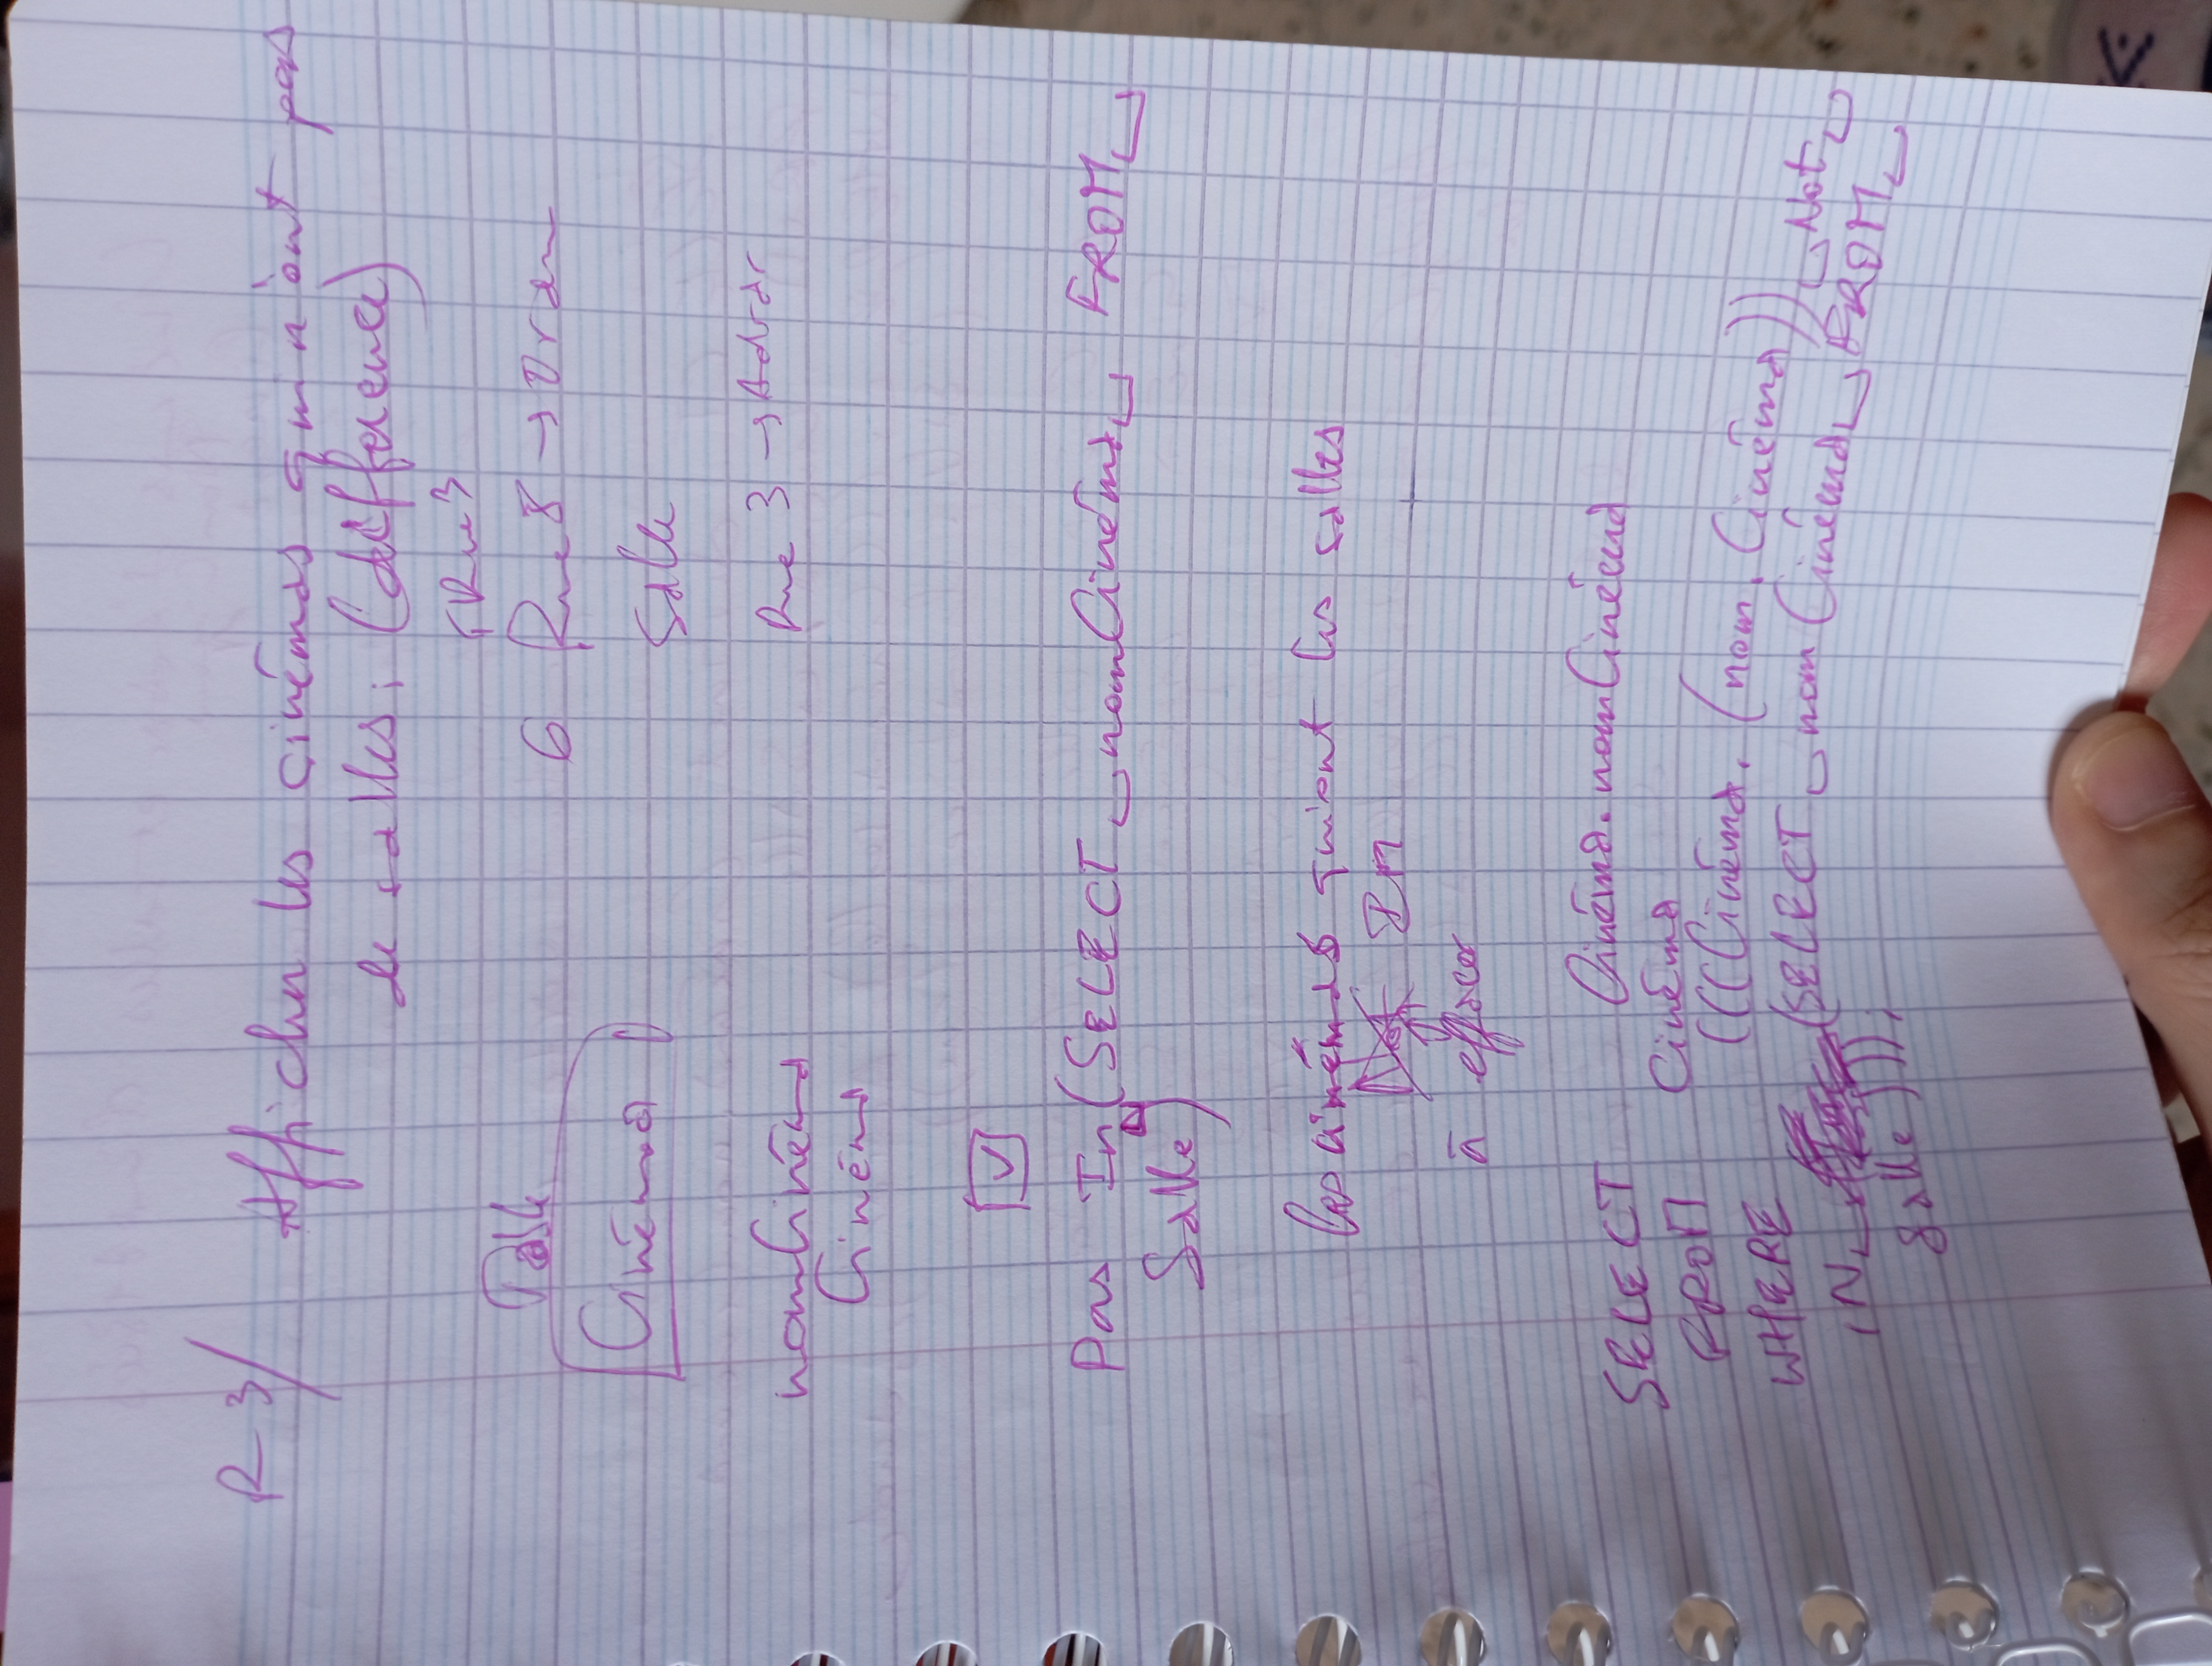 R3/ Afficher les cinémas qui n'ont pas
de salles. (différence)
Rue 3
6 Rue 8 → Oran
Cinéma
Salle
nomCinéma
Rue 3 → Adrar
Cinéma
Pas In (SELECT ⎵ nomCinéma ⎵ FROM ⎵
Salle)
les cinémas qui ont les salles
Not In
à effacer
SELECT Cinéma.nomCinéma
FROM Cinéma
WHERE (((Cinéma.(nom.Cinéma)) ⎵ Not ⎵
IN ⎵ (SELECT ⎵ nomCinéma ⎵ FROM ⎵
Salle)));